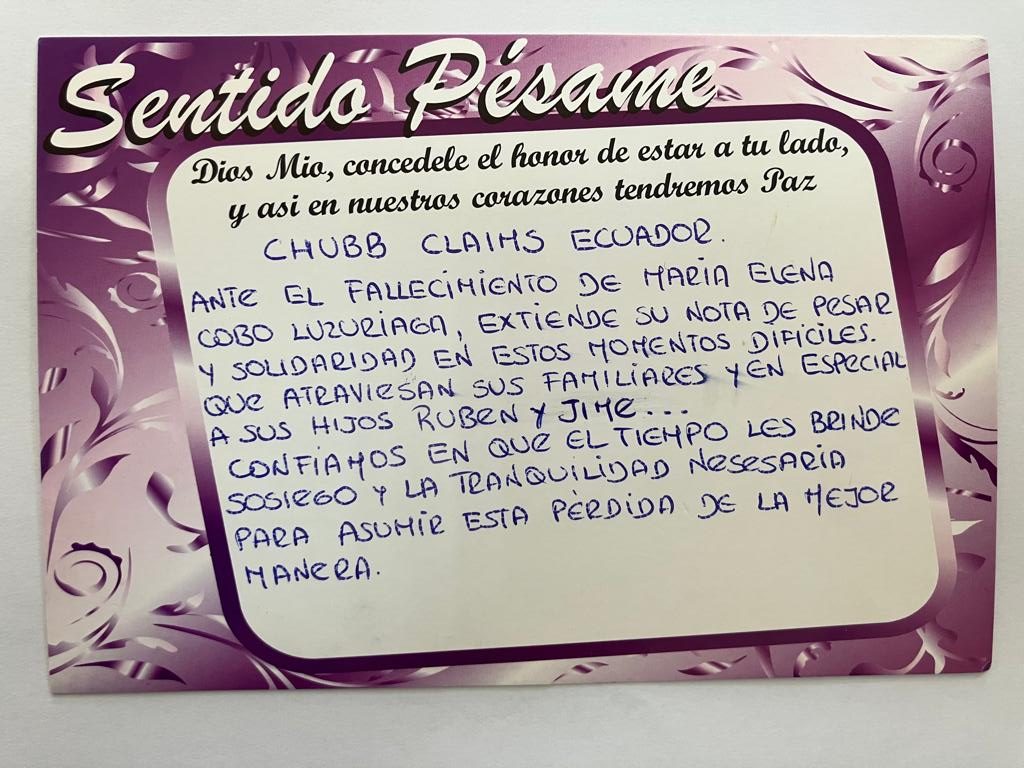 Sentido Pésame
Dios Mio, concedele el honor de estar a tu lado,
y asi en nuestros corazones tendremos Paz
CHUBB CLAIMS ECUADOR.
ANTE EL FALLECIMIENTO DE MARIA ELENA
COBO LUZURIAGA, EXTIENDE SU NOTA DE PESAR
Y SOLIDARIDAD EN ESTOS MOMENTOS DIFICILES.
QUE ATRAVIESAN SUS FAMILIARES Y EN ESPECIAL
A SUS HIJOS RUBEN Y JIME...
CONFIAMOS EN QUE EL TIEMPO LES BRINDE
SOSIEGO Y LA TRANQUILIDAD NESESARIA
PARA ASUMIR ESTA PÈRDIDA DE LA MEJOR
MANERA.